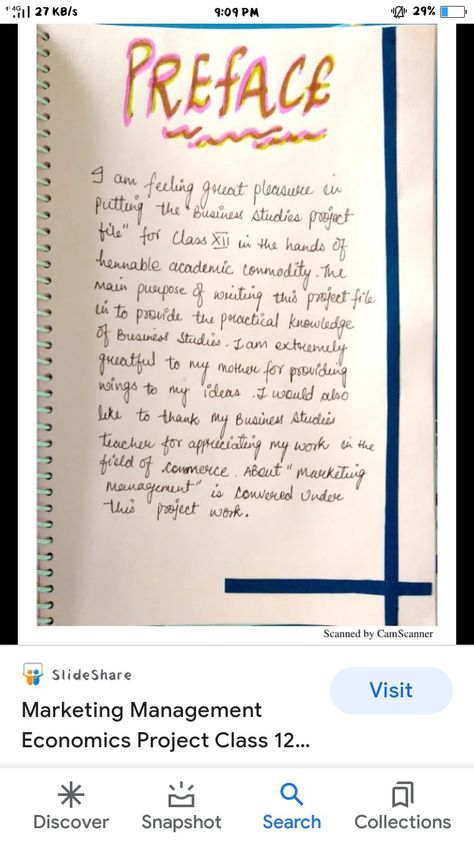 4G 27 KB/s 9:09 PM 29%
PREFACE
I am feeling great pleasure in
putting the "Business Studies project
file" for Class XII in the hands of
hennable academic commodity. The
main purpose of writing this project file
is to provide the practical knowledge
of Business Studies. I am extremely
greatful to my mother for providing
wings to my ideas. I would also
like to thank my Business Studies
teacher for appreciating my work in the
field of commerce. About "Marketing
Management" is convered under
this project work.
Scanned by CamScanner
SlideShare
Visit
Marketing Management
Economics Project Class 12...
Discover Snapshot Search Collections